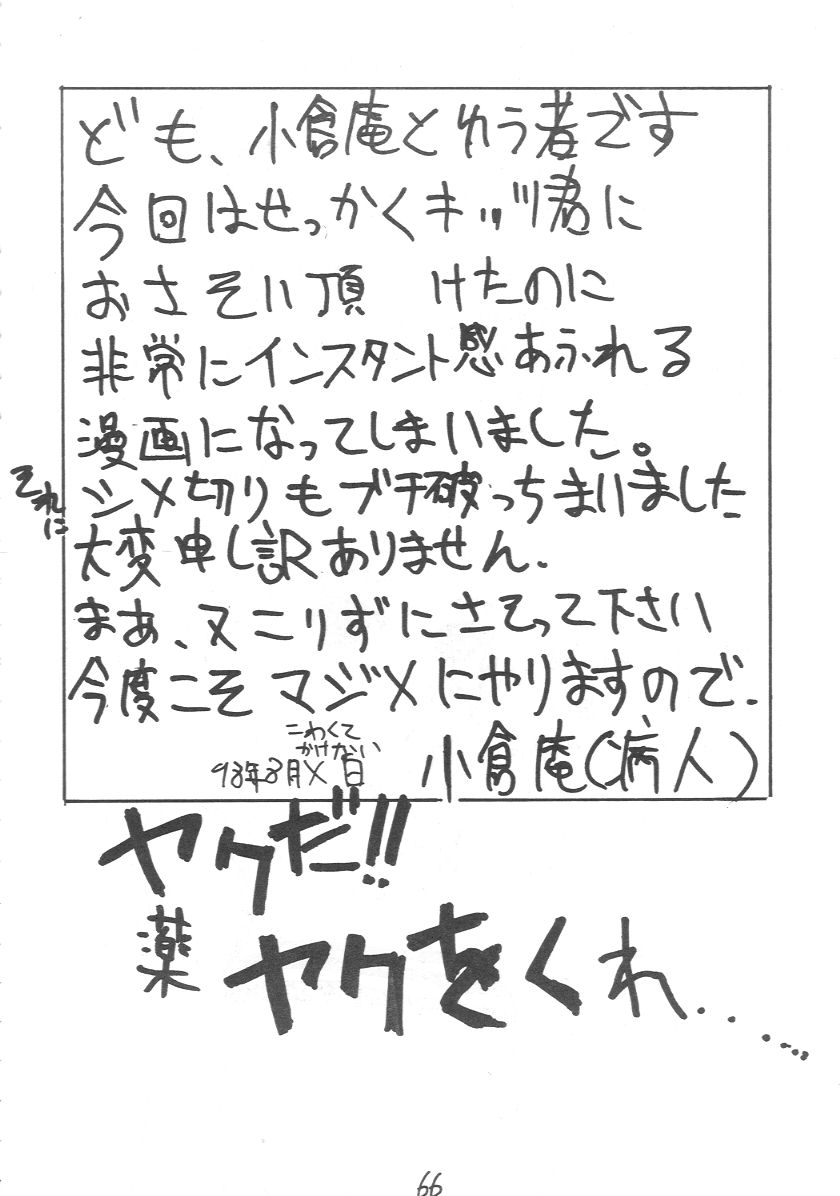 ども、小倉庵とゆう者です
今回はせっかくキッツ君に
おさそい頂　けたのに
非常にインスタント感あふれる
漫画になってしまいました。
それに
シメ切りもブチ破っちまいました
大変申し訳ありません.
まあ、又こりずにさそって下さい
今度こそマジメにやりますので.
こわくて
かけない
98年8月X日
小倉庵(病人)
ヤクだ!!
薬 ヤクをくれ........
66